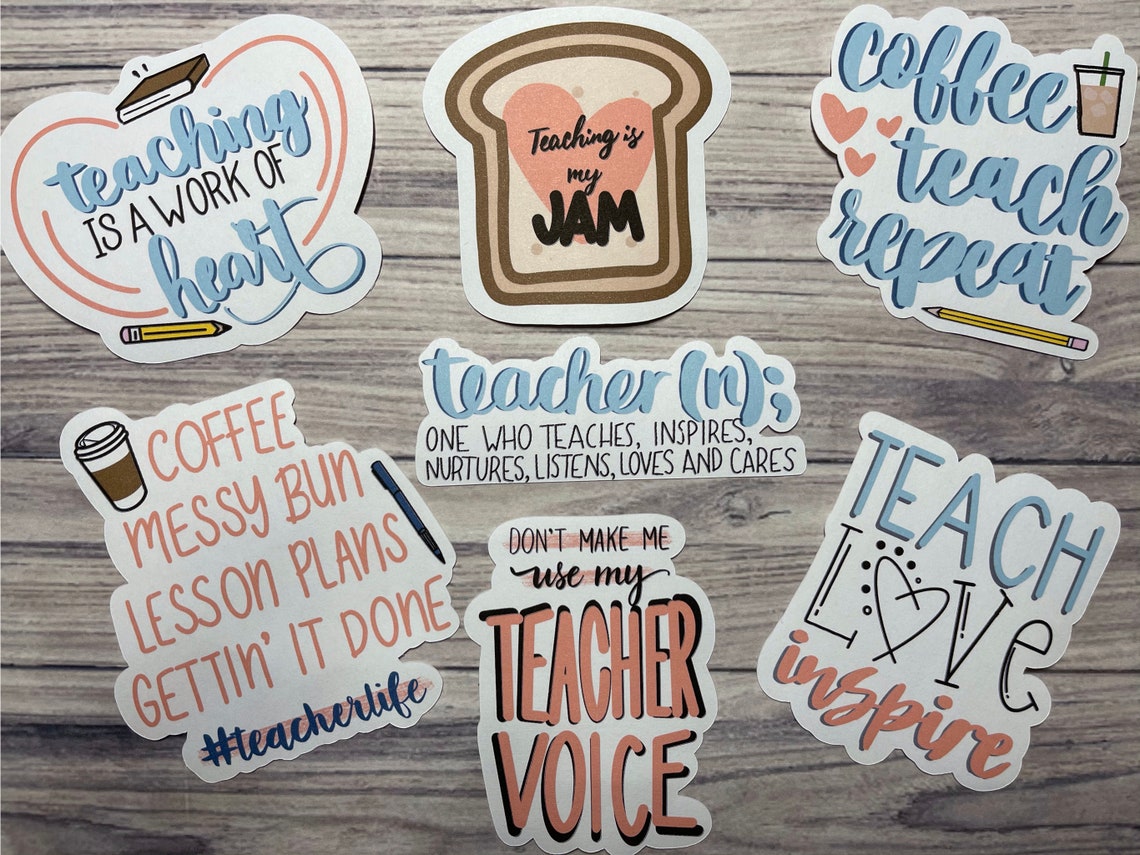 teaching
IS A WORK OF
heart
Teaching is
my
JAM
coffee
teach
repeat
teacher (n);
ONE WHO TEACHES, INSPIRES,
NURTURES, LISTENS, LOVES AND CARES
COFFEE
MESSY BUN
LESSON PLANS
GETTIN' IT DONE
#teacherlife
DON'T MAKE ME
use my
TEACHER
VOICE
TEACH
LOVe
inspire